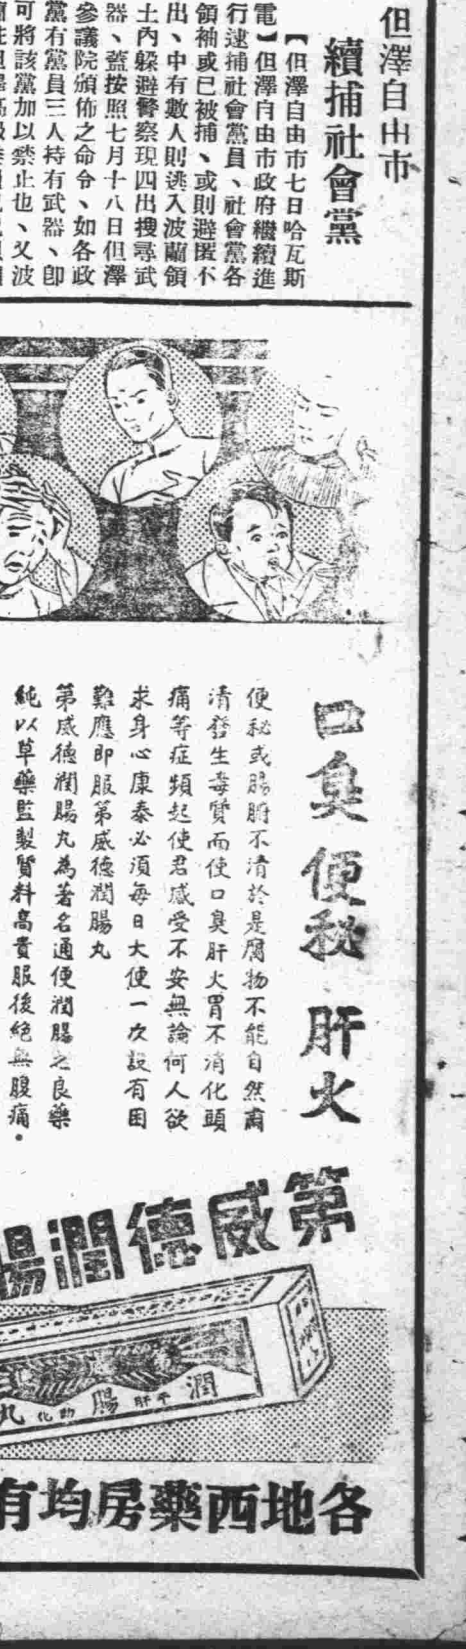 但澤自由市
續捕社會黨
【但澤自由市七日哈瓦斯
電】但澤自由市政府繼續進
行逮捕社會黨員、社會黨各
領袖或已被捕、或則避匿不
出、中有數人則逃入波蘭領
土內躲避警察現四出搜尋武
器、蓋按照七月十八日但澤
參議院頒佈之命令、如各政
黨有黨員三人持有武器、卽
可將該黨加以禁止也、又波
口臭 便秘 肝火
便秘或腸腑不清於是腐物不能自然肅
清發生毒質而使口臭肝火胃不消化頭
痛等症頻起使君感受不安無論何人欲
求身心康泰必須每日大便一次設有困
難應即服第威德潤腸丸
第威德潤腸丸為著名通便潤腸之良藥
純以草藥監製質料高貴服後絕無腹痛.
第威德潤腸
潤腸丸
平肝
助化
各地西藥房均有